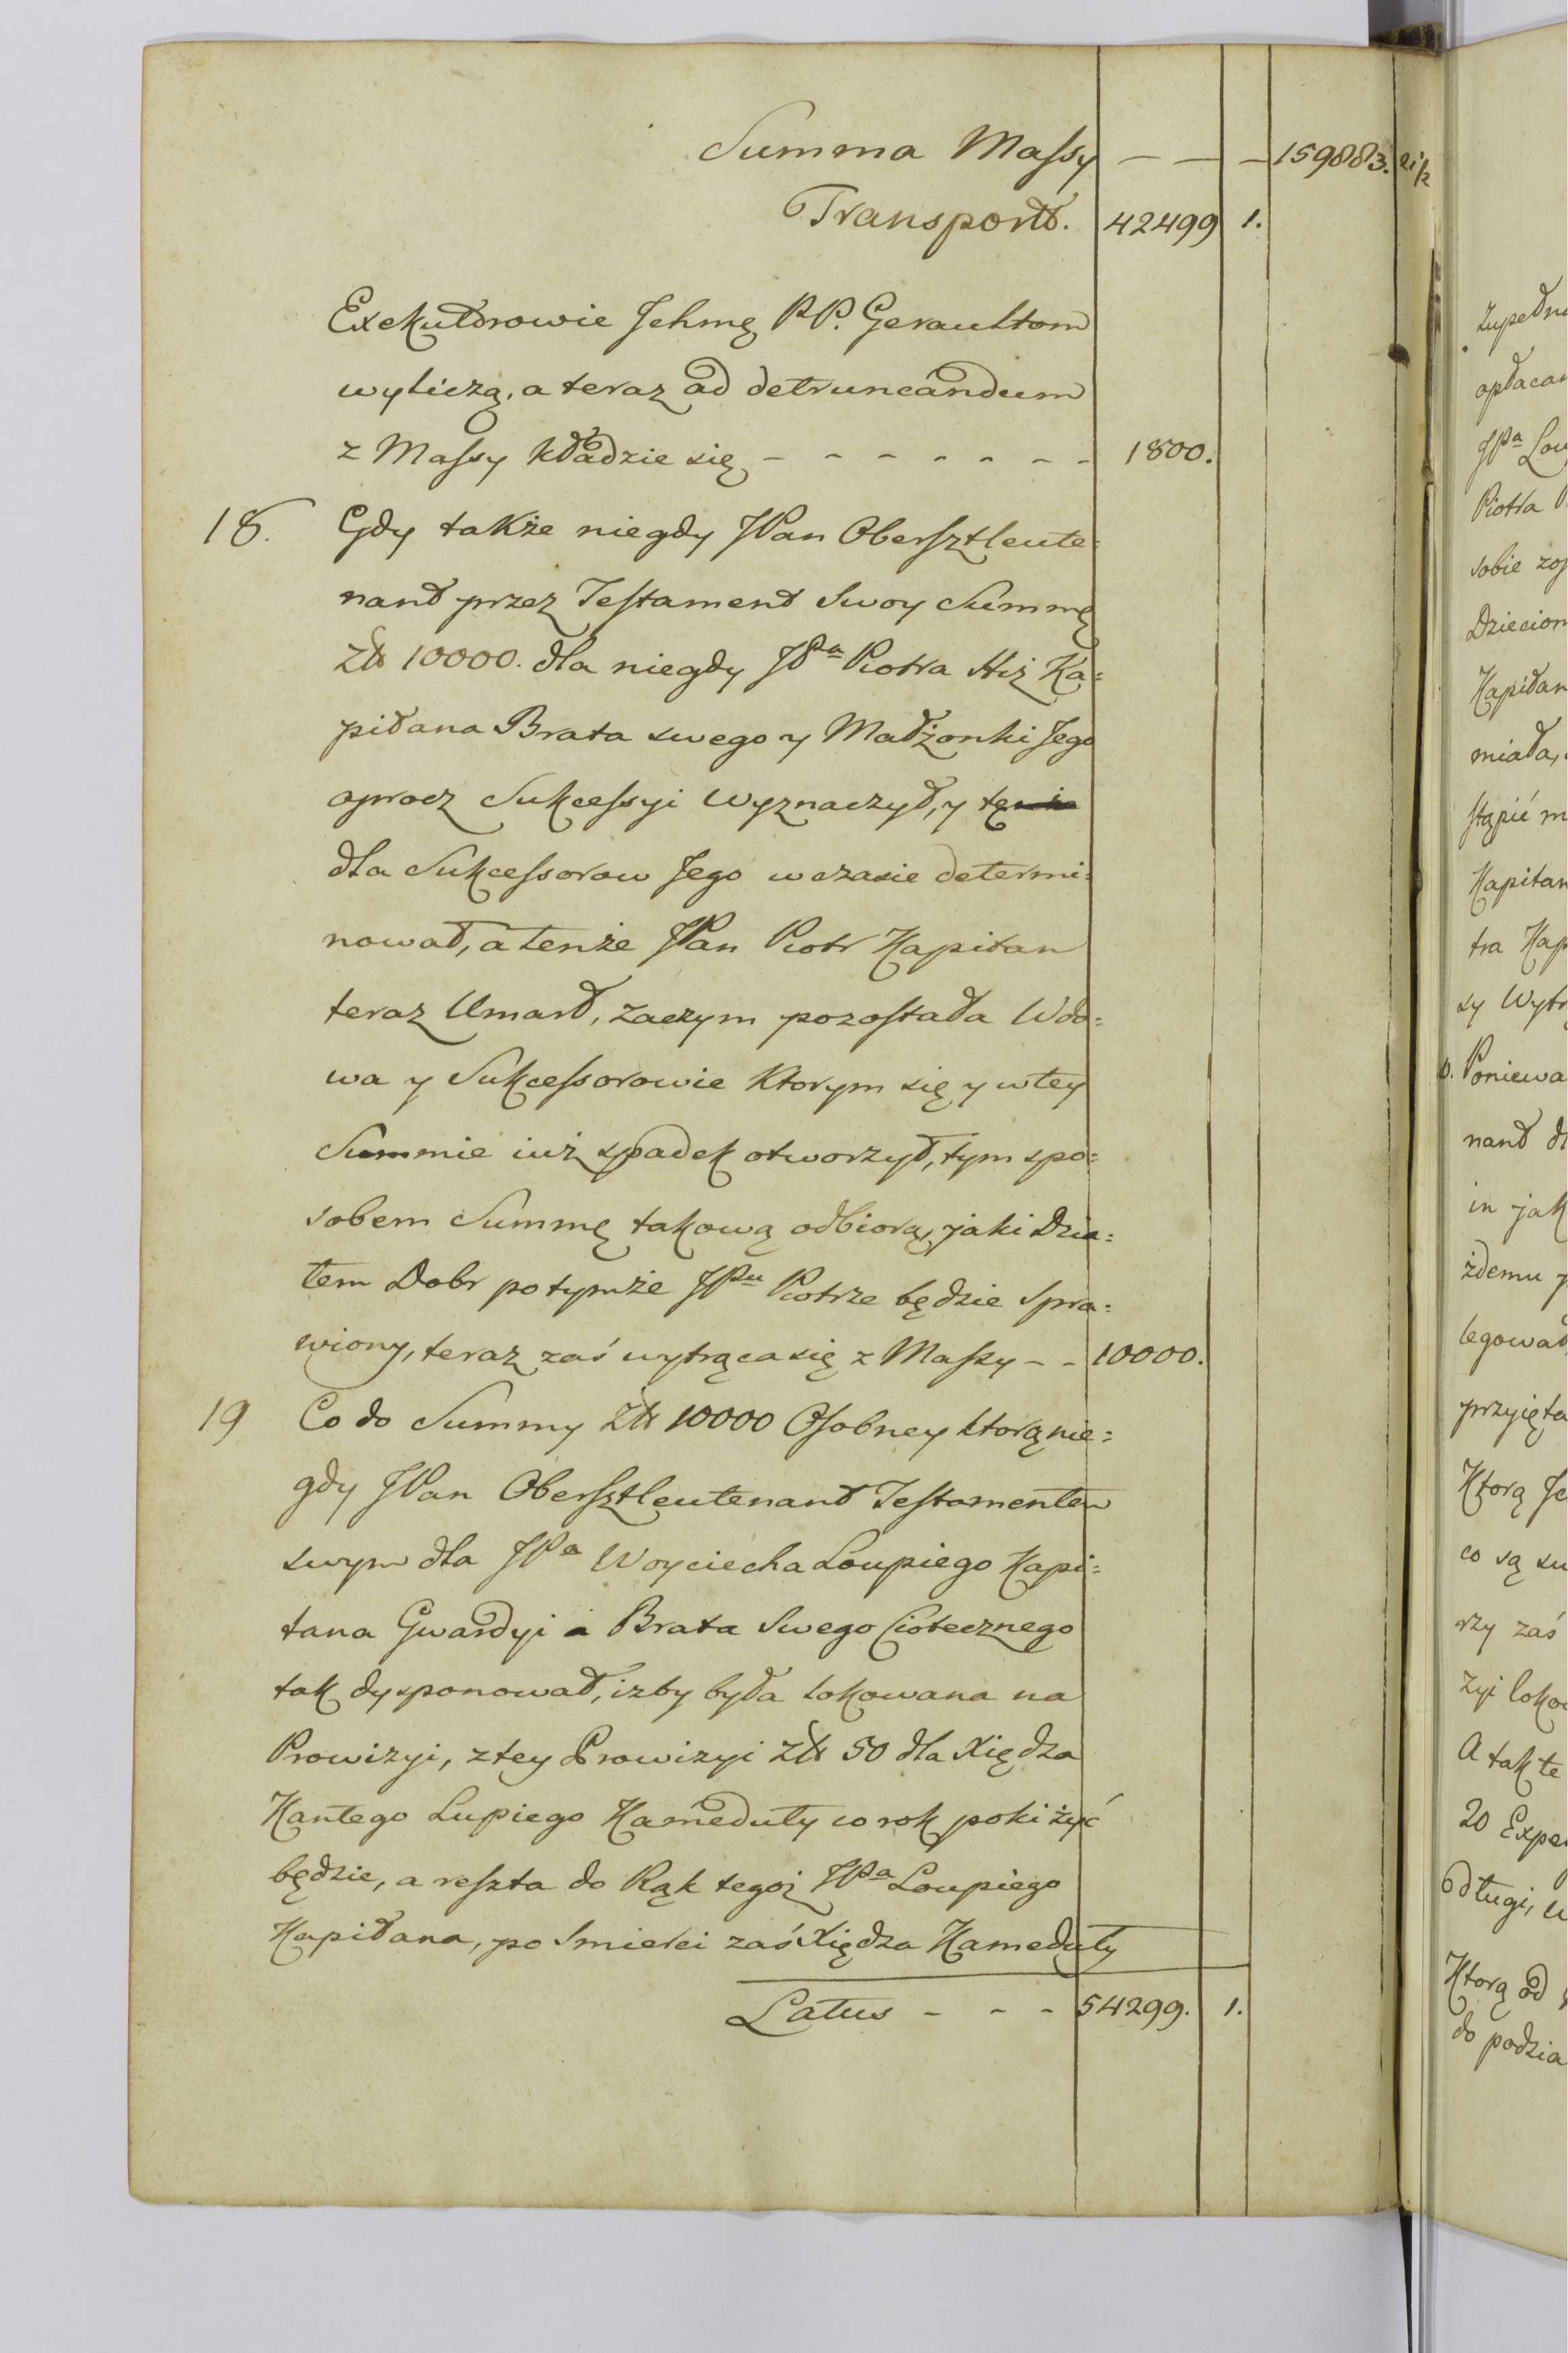 Summa Massy — — — 159883. 21½
Transport. 42499 1.
Exekutorowie Ichmę PP. Geraultom
wyliczą, a teraz ad detruncandum
z Massy kładzie się - - - - - - - 1800.
18. Gdy także niegdy JPan Obersztleute=
nant przez Testament Swoy Summę
Zł 10000. dla niegdy JPa Piotra Hiż Ka=
pitana Brata swego y Małżonki Jego
oprocz Sukcessyi wyznaczył, y tę
dla Sukcessorow Jego w czasie determi=
nował, a tenże JPan Piotr Kapitan
teraz Umarł, zaczym pozostała Wdo=
wa y Sukcessorowie ktorym się y wtey
Summie iuż spadek otworzył, tym spo=
sobem Summę takową odbiorą, jaki Dzia=
łem Dobr potymże JPu Piotrze będzie spra=
wiony, teraz zaś wytrąca się z Massy - - 10000.
19 Co do Summy Zł 10000 Osobney ktorą nie=
gdy JPan Obersztleutenant Testamentem
swym dla JPa Woyciecha Loupiego Kapi=
tana Gwardyi a Brata Swego Ciotecznego
tak dysponował, izby była lokowana na
Prowizyi, z tey Prowizyi Zł 50 dla Xiędza
Kantego Lupiego Kameduły co rok poki żyć
będzie, a reszta do Rąk tegoż JPa Loupiego
Kapitana, po smierci zaś Xiędza Kameduły
Latus - - - 54299. 1.
opłacan
JPa Lou
Piotra
sobie
Dziecion
Kapitan
miała,
stąpić m
Kapitan
tra Kap
sy Wytr
Poniewa
nant dl
in jak
żdemu p
legował
przyięta
Ktorą Je
co są su
rzy zaś
zyi loko
A tak te
20 Expe
długi, w
Ktorą od
do podzia